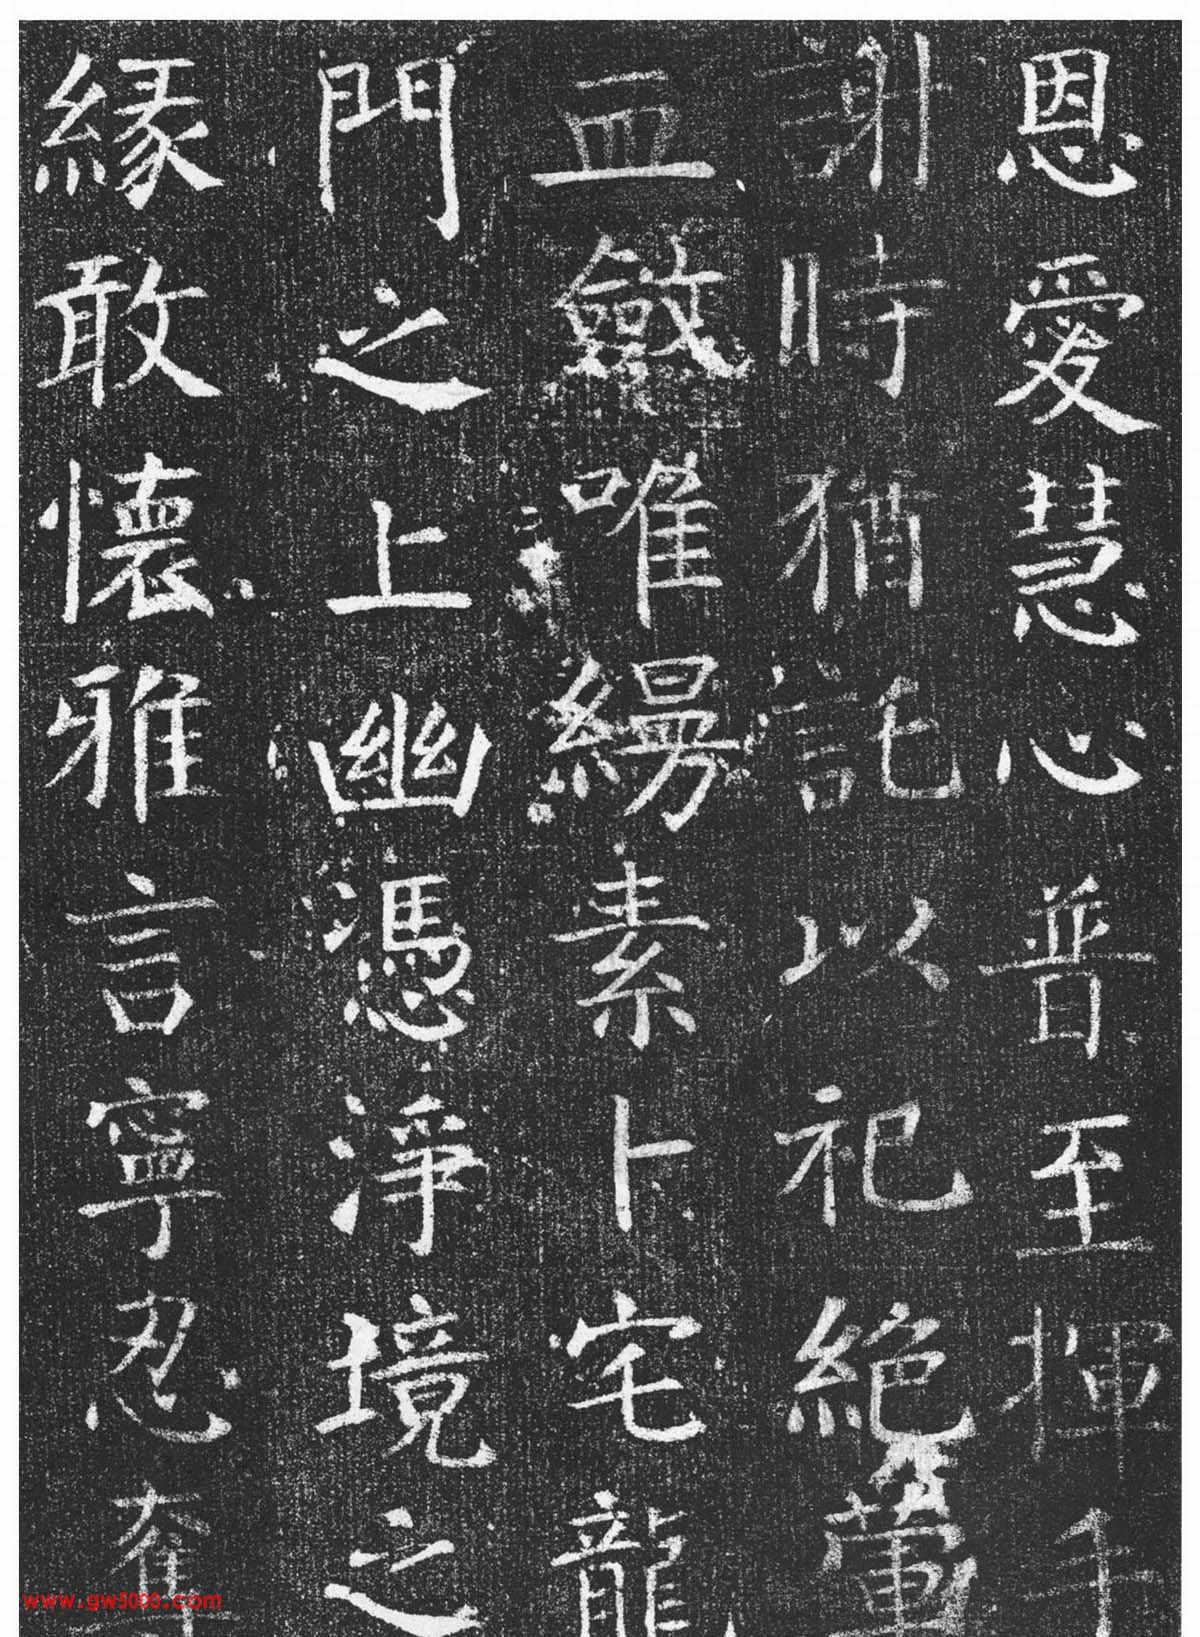 恩愛慧心普至揮手
謝時猶託以祀絕葷
血斂唯縵素卜宅龍
門之上幽憑淨境之
緣敢懷雅言寧忍奪
www.gw5000.com